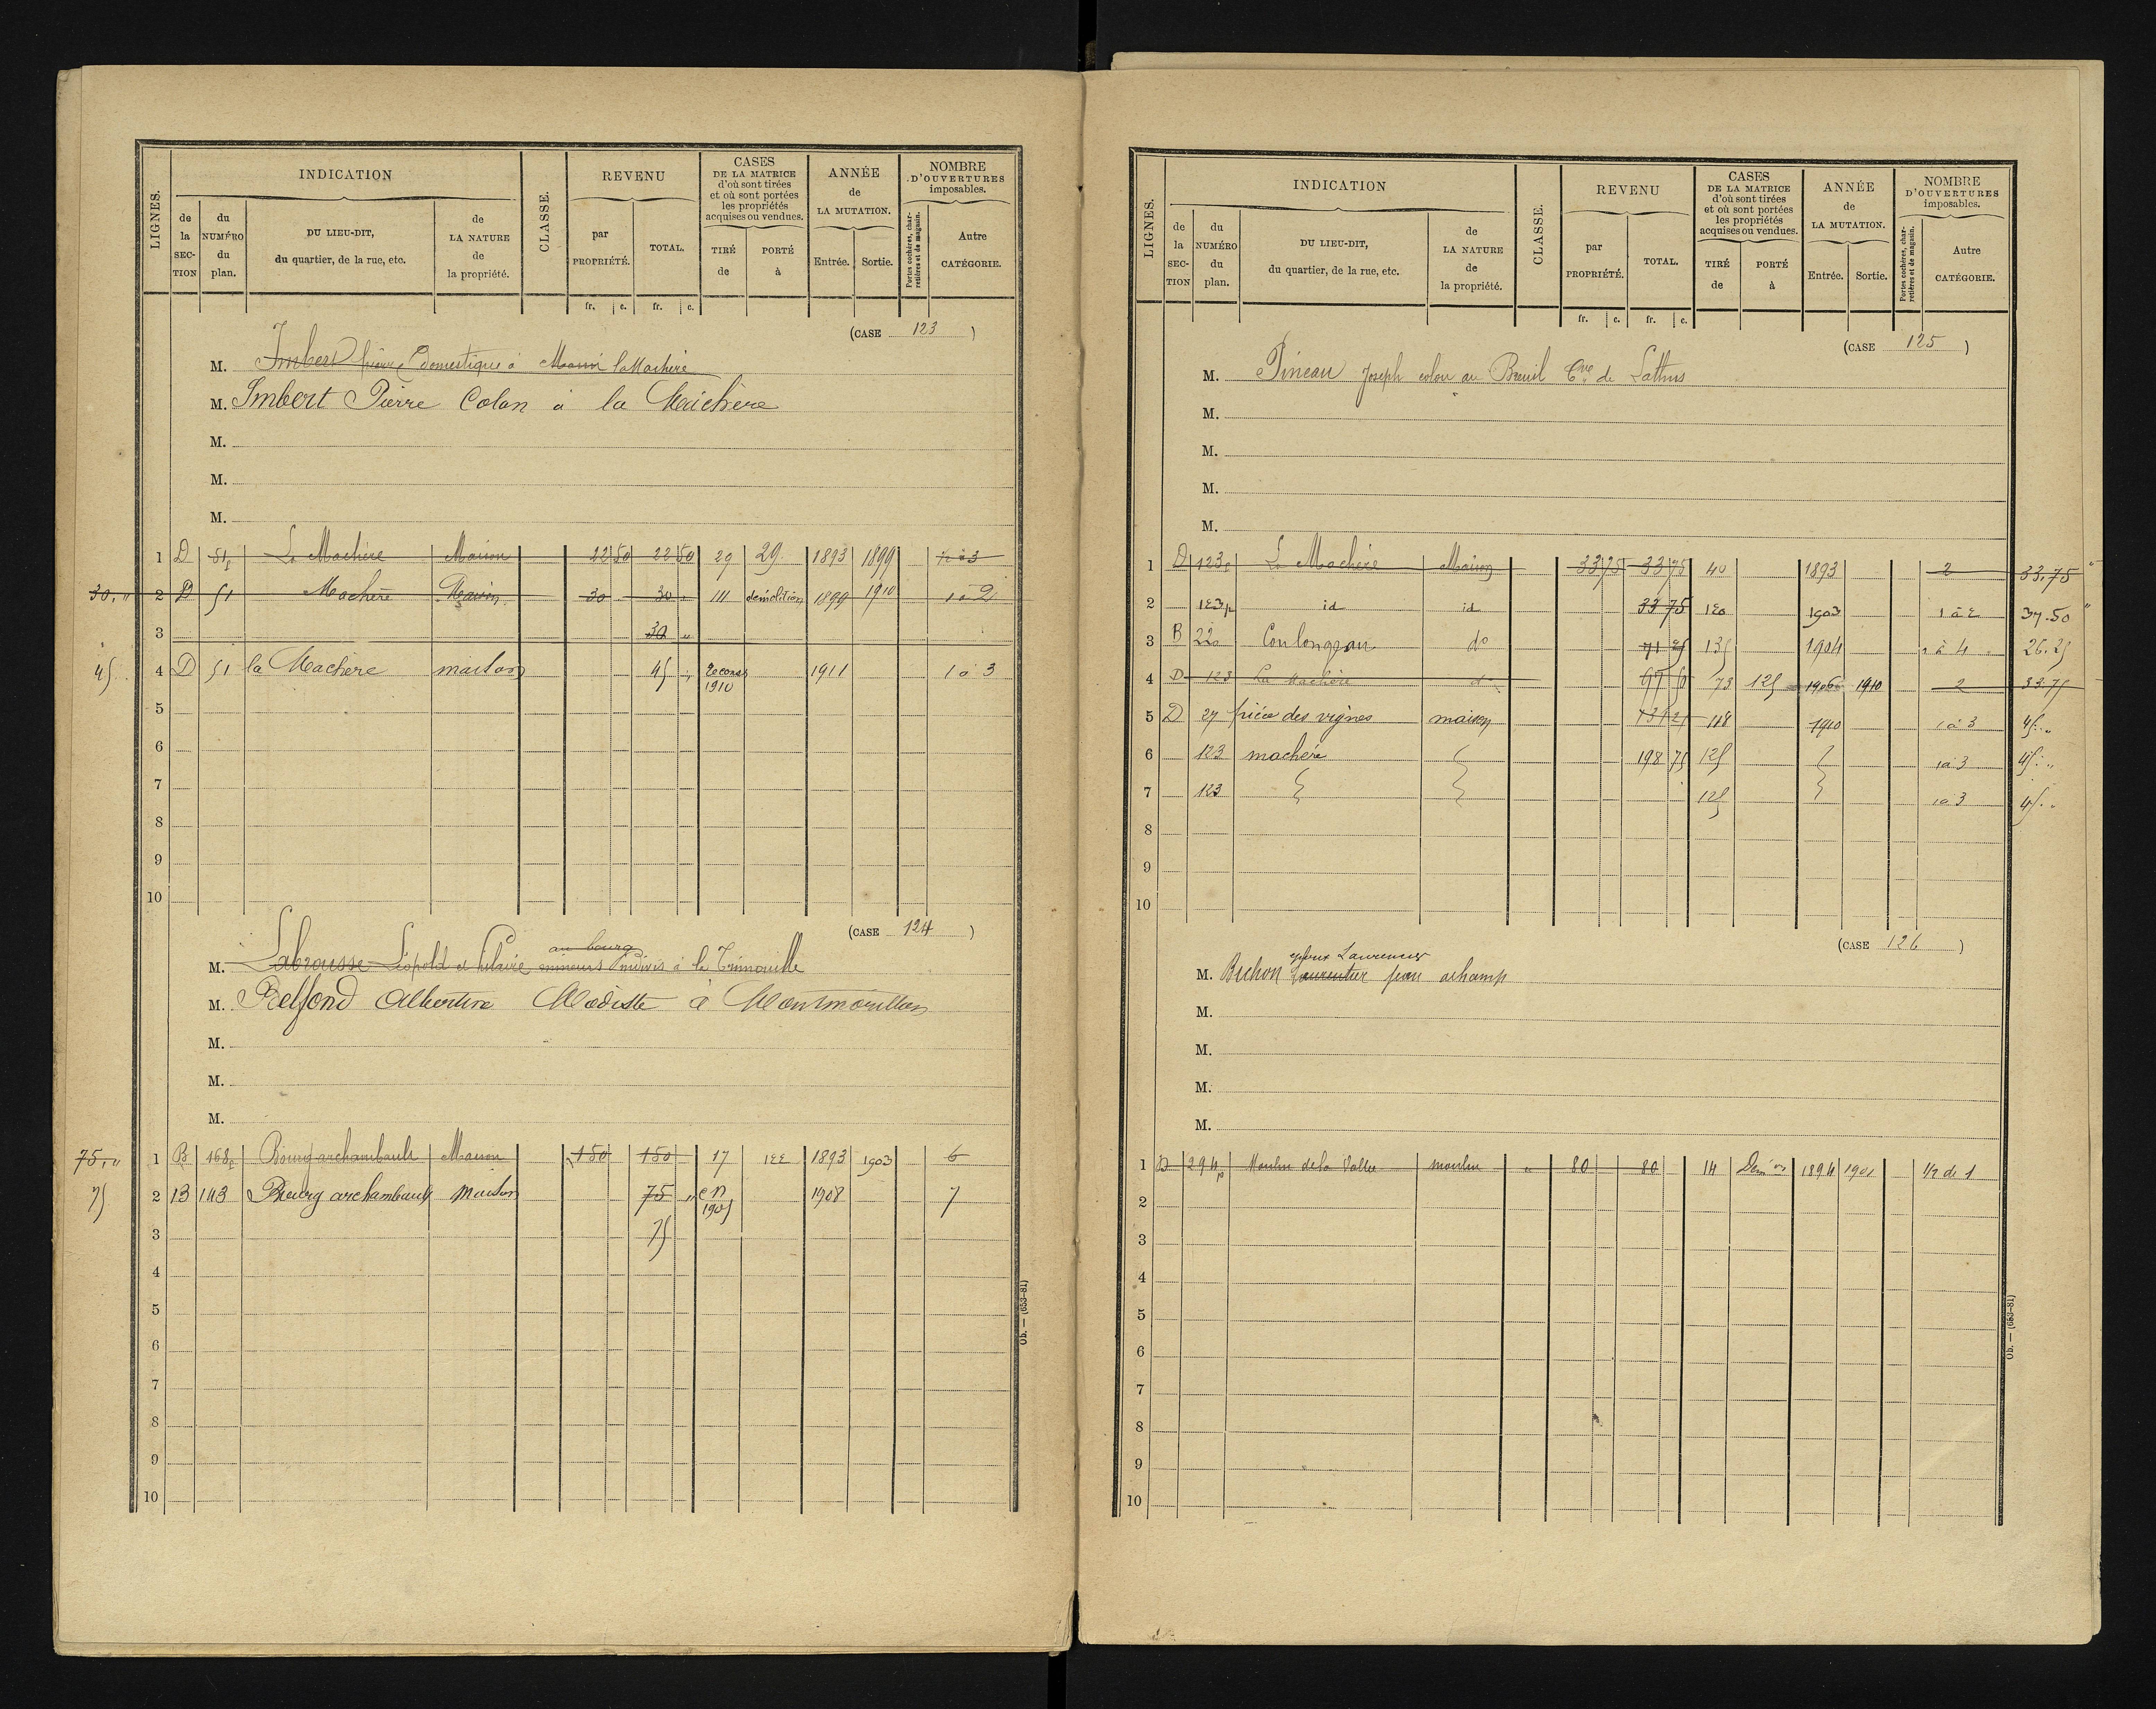 LIGNES.
INDICATION
de la SECTION
du NUMÉRO du plan.
DU LIEU-DIT, du quartier, de la rue, etc.
de LA NATURE de la propriété.
CLASSE.
REVENU
par PROPRIÉTÉ.
TOTAL.
fr. c. fr. c.
CASES DE LA MATRICE d'où sont tirées et où sont portées les propriétés acquises ou vendues.
TIRÉ de
PORTÉ à
ANNÉE de LA MUTATION.
Entrée. Sortie.
NOMBRE D'OUVERTURES imposables.
Portes cochères, charretières et de magasin.
Autre CATÉGORIE.
(CASE 123)
M. Imbert Pierre domestique à la Machère
M. Imbert Pierre Colon à la Machère
M.
M.
M.
1 D 51p La Machère Maison 22 50 22 50 29 29 1893 1899 1 à 3
30 " 2 D 51 Machère Maison 30 30 " 111 demolition 1899 1910 1 à 2
3 30 "
45 4 D 51 la Machère maison 45 " 1910 1911 1 à 3
5
6
7
8
9
10
(CASE 124)
au bourg
M. Labrousse Léopold et Hilaire mineurs indivis à la Trimouille
M. Belfond Albertine Modiste à Montmorillon
M.
M.
M.
75 " 1 B 168p Bourg archambault Maison 150 150 17 122 1893 1903 6
75 2 B 143 Bourg archambault maison 75 " en 1905 1908 7
3 75
4
5
6
7
8
9
10
Ob. — (653-81)
LIGNES.
INDICATION
de la SECTION
du NUMÉRO du plan.
DU LIEU-DIT, du quartier, de la rue, etc.
de LA NATURE de la propriété.
CLASSE.
REVENU
par PROPRIÉTÉ.
TOTAL.
fr. c. fr. c.
CASES DE LA MATRICE d'où sont tirées et où sont portées les propriétés acquises ou vendues.
TIRÉ de
PORTÉ à
ANNÉE de LA MUTATION.
Entrée. Sortie.
NOMBRE D'OUVERTURES imposables.
Portes cochères, charretières et de magasin.
Autre CATÉGORIE.
(CASE 125)
M. Pineau Joseph colon au Breuil Cne de Lathus
M.
M.
M.
M.
1 D 123p La Machère Maison 33 75 33 75 40 1893 2 33.75
2 123p id id 33 75 120 1903 1 à 2 37.50
3 B 220 Coulongeau do 71 25 135 1904 1 à 4 26.25
4 D 123 La Machère do 97 50 73 125 1906 1910 2 33.75
5 D 27 pièce des vignes maison 131 25 118 1910 1 à 3 45. "
6 123 machère 198 75 125 1 à 3 45. "
7 123 125 1 à 3 45. "
8
9
10
(CASE 126)
époux Laurencier
M. Buchon Laurentier jean archamp
M.
M.
M.
M.
1 B 294p Moulin de la Vallée moulin " 80 80 14 Dém on 1894 1901 1/2 de 1
2
3
4
5
6
7
8
9
10
Ob. — (653-81)